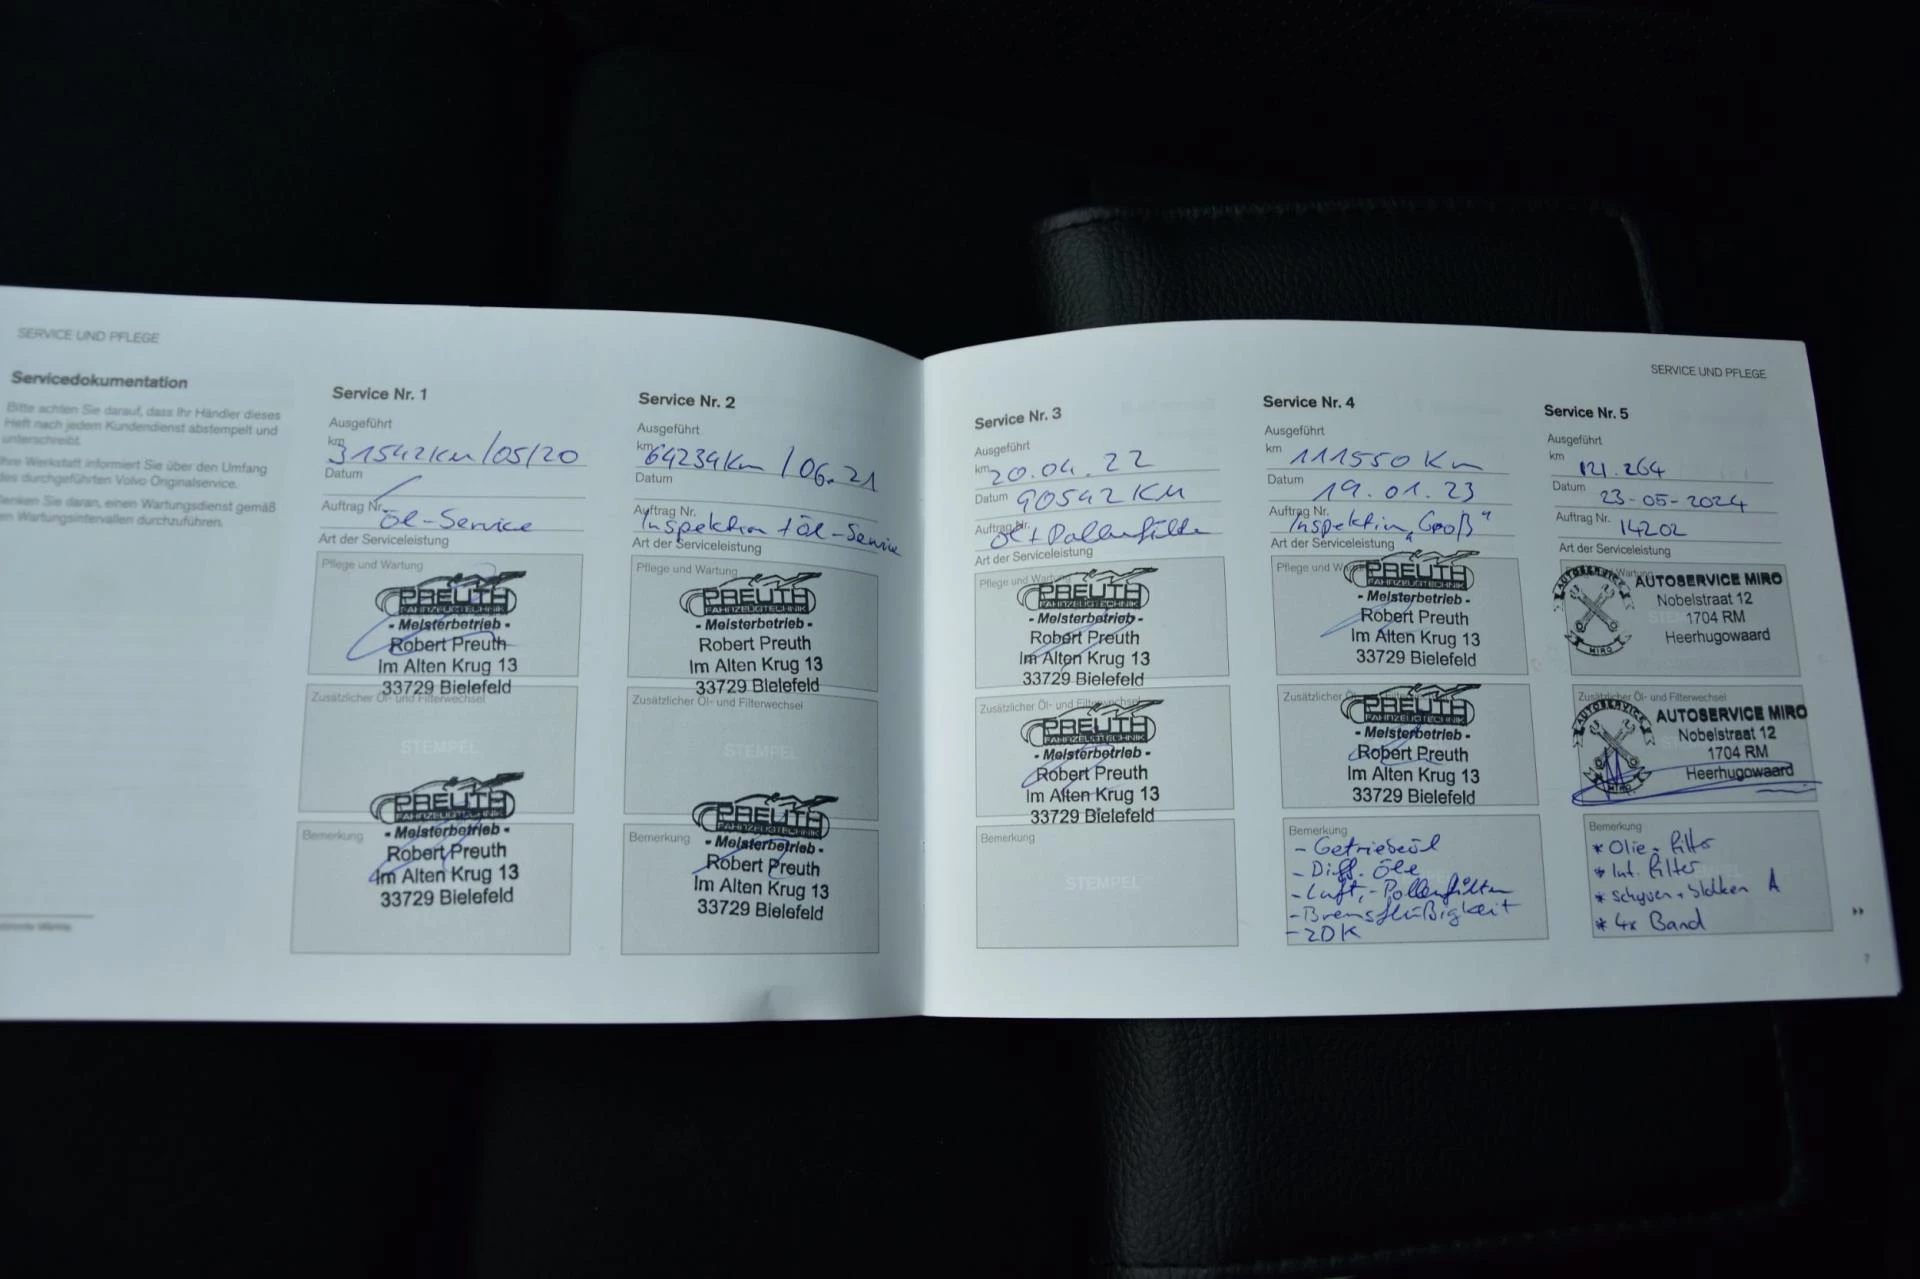 SERVICE UND PFLEGE
Servicedokumentation
Bitte achten Sie darauf, dass Ihr Händler dieses
Heft nach jedem Kundendienst abstempelt und
unterschreibt.
Ihre Werkstatt informiert Sie über den Umfang
des durchgeführten Volvo Originalservice.
Denken Sie daran, einen Wartungsdienst gemäß
den Wartungsintervallen durchzuführen.
Service Nr. 1
Ausgeführt
km 31542km/05/20
Datum
Auftrag Nr. Öl-Service
Art der Serviceleistung
Pflege und Wartung
PREUTH
FAHRZEUGTECHNIK
- Meisterbetrieb -
Robert Preuth
Im Alten Krug 13
33729 Bielefeld
Zusätzlicher Öl- und Filterwechsel
STEMPEL
Bemerkung
PREUTH
FAHRZEUGTECHNIK
- Meisterbetrieb -
Robert Preuth
Im Alten Krug 13
33729 Bielefeld
Service Nr. 2
Ausgeführt
km 64234km / 06.21
Datum
Auftrag Nr. Inspektion + Öl-Service
Art der Serviceleistung
Pflege und Wartung
PREUTH
FAHRZEUGTECHNIK
- Meisterbetrieb -
Robert Preuth
Im Alten Krug 13
33729 Bielefeld
Zusätzlicher Öl- und Filterwechsel
STEMPEL
Bemerkung
PREUTH
FAHRZEUGTECHNIK
- Meisterbetrieb -
Robert Preuth
Im Alten Krug 13
33729 Bielefeld
SERVICE UND PFLEGE
Service Nr. 3
Ausgeführt
km 20.04.22
Datum 90542 KM
Auftrag Nr. Öl + Pollenfilter
Art der Serviceleistung
Pflege und Wartung
PREUTH
FAHRZEUGTECHNIK
- Meisterbetrieb -
Robert Preuth
Im Alten Krug 13
33729 Bielefeld
Zusätzlicher Öl- und Filterwechsel
PREUTH
FAHRZEUGTECHNIK
- Meisterbetrieb -
Robert Preuth
Im Alten Krug 13
33729 Bielefeld
Bemerkung
STEMPEL
Service Nr. 4
Ausgeführt
km 111550 Km
Datum 19.01.23
Auftrag Nr. Inspektion „Groß"
Art der Serviceleistung
Pflege und Wartung
PREUTH
FAHRZEUGTECHNIK
- Meisterbetrieb -
Robert Preuth
Im Alten Krug 13
33729 Bielefeld
Zusätzlicher Öl- und Filterwechsel
PREUTH
FAHRZEUGTECHNIK
- Meisterbetrieb -
Robert Preuth
Im Alten Krug 13
33729 Bielefeld
Bemerkung
- Getriebeöl
- Diff. Öle
- Luft,- Pollenfilter
- Bremsflüßigkeit
- ZDK
Service Nr. 5
Ausgeführt
km 121.264
Datum 23-05-2024
Auftrag Nr. 14202
Art der Serviceleistung
Wartung
AUTOSERVICE MIRO
AUTOSERVICE MIRO
Nobelstraat 12
1704 RM
Heerhugowaard
Zusätzlicher Öl- und Filterwechsel
AUTOSERVICE MIRO
AUTOSERVICE MIRO
Nobelstraat 12
1704 RM
Heerhugowaard
Bemerkung
* Olie - filter
* Int. filter
* schyven + blokken A
* 4x Band
7